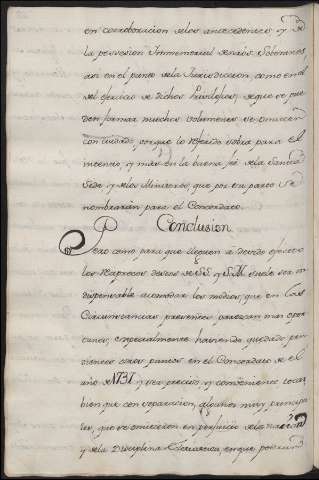 en corroboracion de los antecedentes, y de
la possesion Immemorial de n̄ros Soberanos,
asi en el punto de la Jurisdiccion, como en el
del exercicio de dichos Privilegios, de que se pue
den formar muchos volumenes se omiten
con cuidado, porque lo referido sobra para el
intento, y mas en la buena fee de la Santa
Sede y de los Ministros, que por su parte se
nombrarán para el Concordato.
Conclusion
Pero como para que lleguen á devido efecto
los expresos deseos de S.S. y S.M. suele ser in
dispensable acomodar los medios, que en las
Circunstancias presentes parezcan mas opor
tunos, especialmente haviendo quedado pen
dientes varios puntos en el Concordato de el
año de 1737 y ser preciso, y combeniente tocar
bien que con separacion, algunos muy principa
les, que se omitieron en perjuicio de la Nacion
y de la Disciplina Eclesiastica, en que